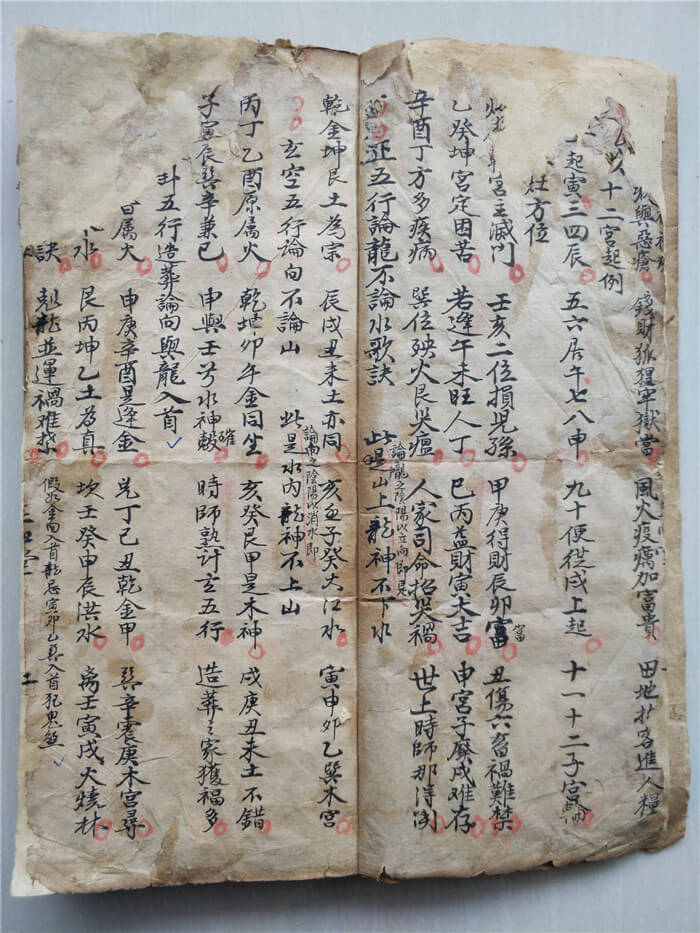 興 瘟𤺥 錢財孤狸牢獄當 風火疫癘加富貴 田地 客進人糧
十二宮起例
起寅三四辰 五六居午七八申 九十便從戌上起 十一十二子宮
灶方位
宮主滅門 壬亥二位損兒孫 甲庚得財辰卯富富 丑傷六畜禍難禁
乙癸坤宮定困苦 若逢午未旺人丁 巳丙益財寅大吉 申宮子廢戌难存
辛酉丁方多疾病 巽位殃火艮災瘟 人家司命招災禍 世上時師那得
正五行論龍不論水歌訣 論龍之陰陽以立向即是 此是山上龍神不下水
乾金坤艮土為宗 辰戌丑未土亦同 亥壬子癸大江水 寅申卯乙巽木宮
玄空五行論向不論山 論向之陰陽以消水即 此是水內龍神不上山
丙丁乙酉原属火 乾坤卯午金同生 亥癸艮甲是木神 戌庚丑未土不錯
子寅辰巽辛兼巳 申與壬兮水神 時師熟計玄五行 造葬之家獲福多
卦五行造葬論向與龍入首
属火 申庚辛酉是逢金 兌丁己丑乾金甲 巽辛震庚木宮尋
水 艮丙坤乙土為真 坎壬癸申辰洪水 离壬寅戌火燒林
訣 龍並運禍難 假如金向入首龍忌寅卯乙巽入首犯鬼煞